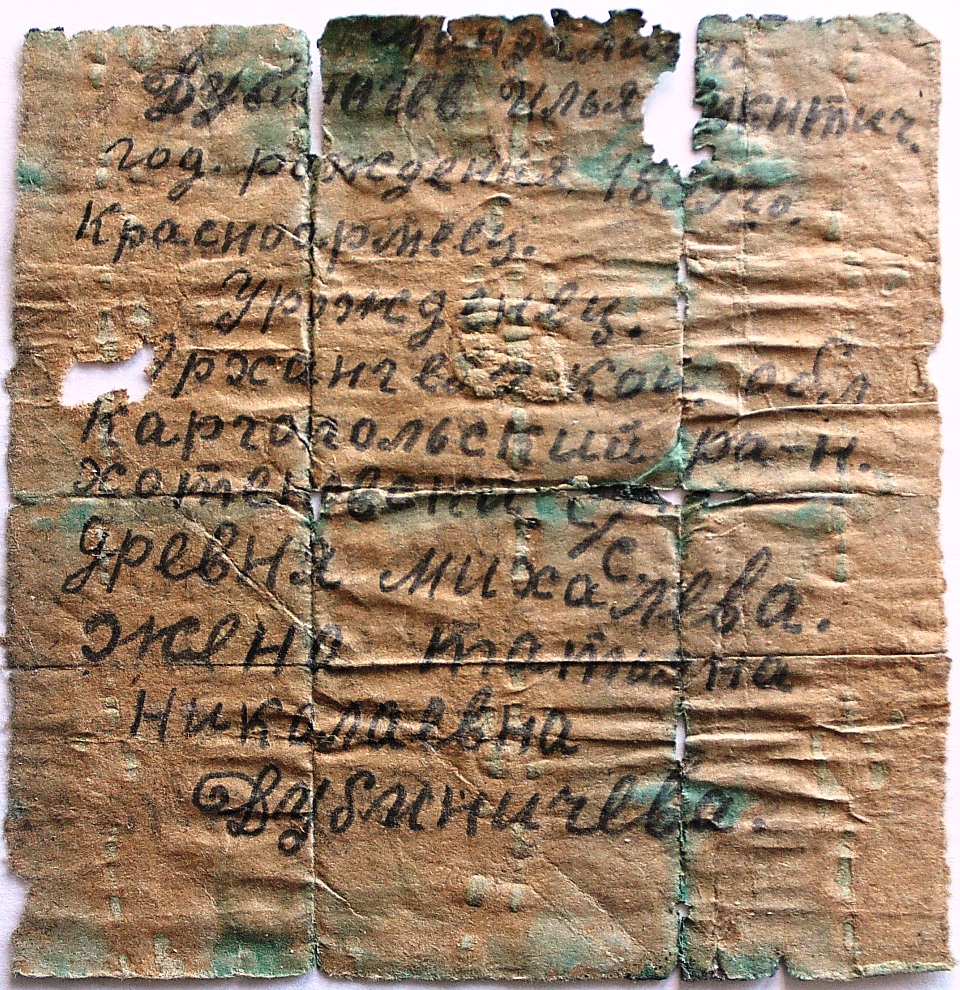 Дубиничев Илья
год. рождения
Красноармеец.
Урожденец.
обл
Каргопольский ра-н.
с/с.
древня михалева.
жена татьяна
Николаевна
Дубиничева.